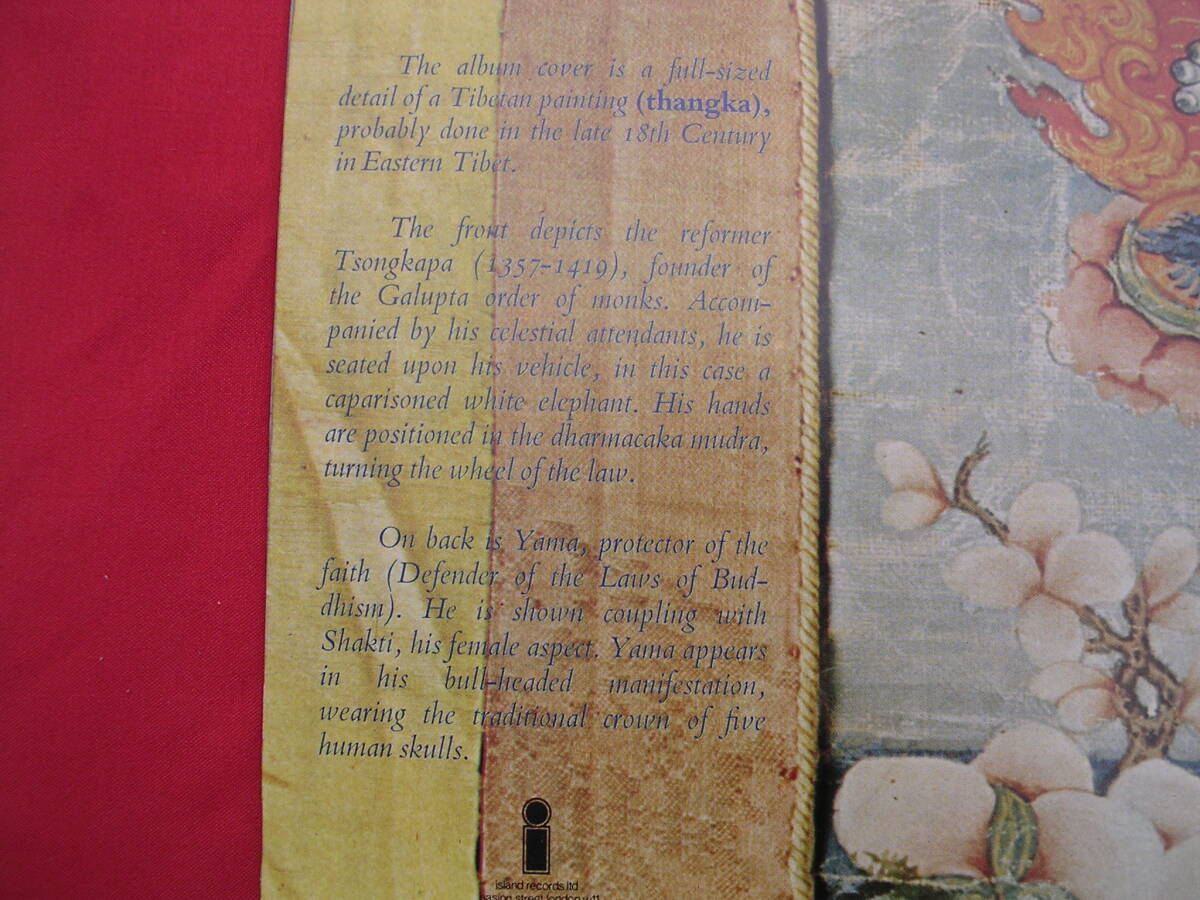 The album cover is a full-sized
detail of a Tibetan painting (thangka),
probably done in the late 18th Century
in Eastern Tibet.
The front depicts the reformer
Tsongkapa (1357-1419), founder of
the Galupta order of monks. Accom-
panied by his celestial attendants, he is
seated upon his vehicle, in this case a
caparisoned white elephant. His hands
are positioned in the dharmacaka mudra,
turning the wheel of the law.
On back is Yama, protector of the
faith (Defender of the Laws of Bud-
dhism). He is shown coupling with
Shakti, his female aspect. Yama appears
in his bull-headed manifestation,
wearing the traditional crown of five
human skulls.
island records ltd
street london w11